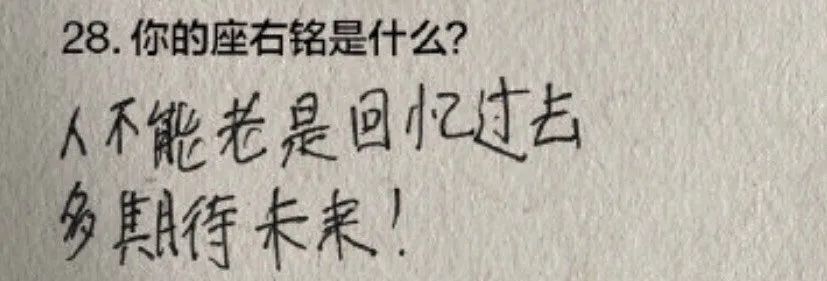 28. 你的座右铭是什么?
人不能老是回忆过去
多期待未来!